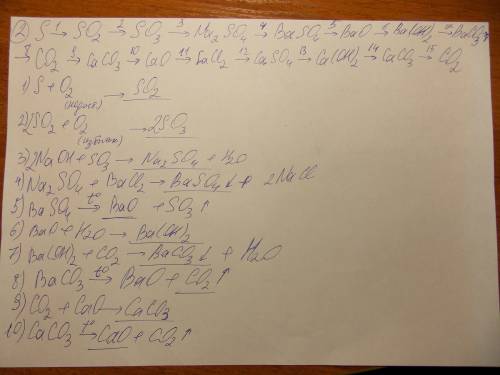 ② S ¹→ SO₂ ²→ SO₃ ³→ Na₂SO₄ ⁴→ BaSO₄ ⁵→ BaO ⁶→ Ba(OH)₂ ⁷→ BaCO₃
⁸→ CO₂ ⁹→ CaCO₃ ¹⁰→ CaO ¹¹→ CaCl₂ ¹²→ CaSO₄ ¹³→ Ca(OH)₂ ¹⁴→ CaCO₃ ¹⁵→ CO₂
1) S + O₂ → SO₂
2) 2SO₂ + O₂ (избыток) → 2SO₃
3) 2NaOH + SO₃ → Na₂SO₄ + H₂O
4) Na₂SO₄ + BaCl₂ → BaSO₄↓ + 2NaCl
5) BaSO₄ t°→ BaO + SO₃↑
6) BaO + H₂O → Ba(OH)₂
7) Ba(OH)₂ + CO₂ → BaCO₃↓ + H₂O
8) BaCO₃ t°→ BaO + CO₂↑
9) CO₂ + CaO → CaCO₃
10) CaCO₃ t°→ CaO + CO₂↑